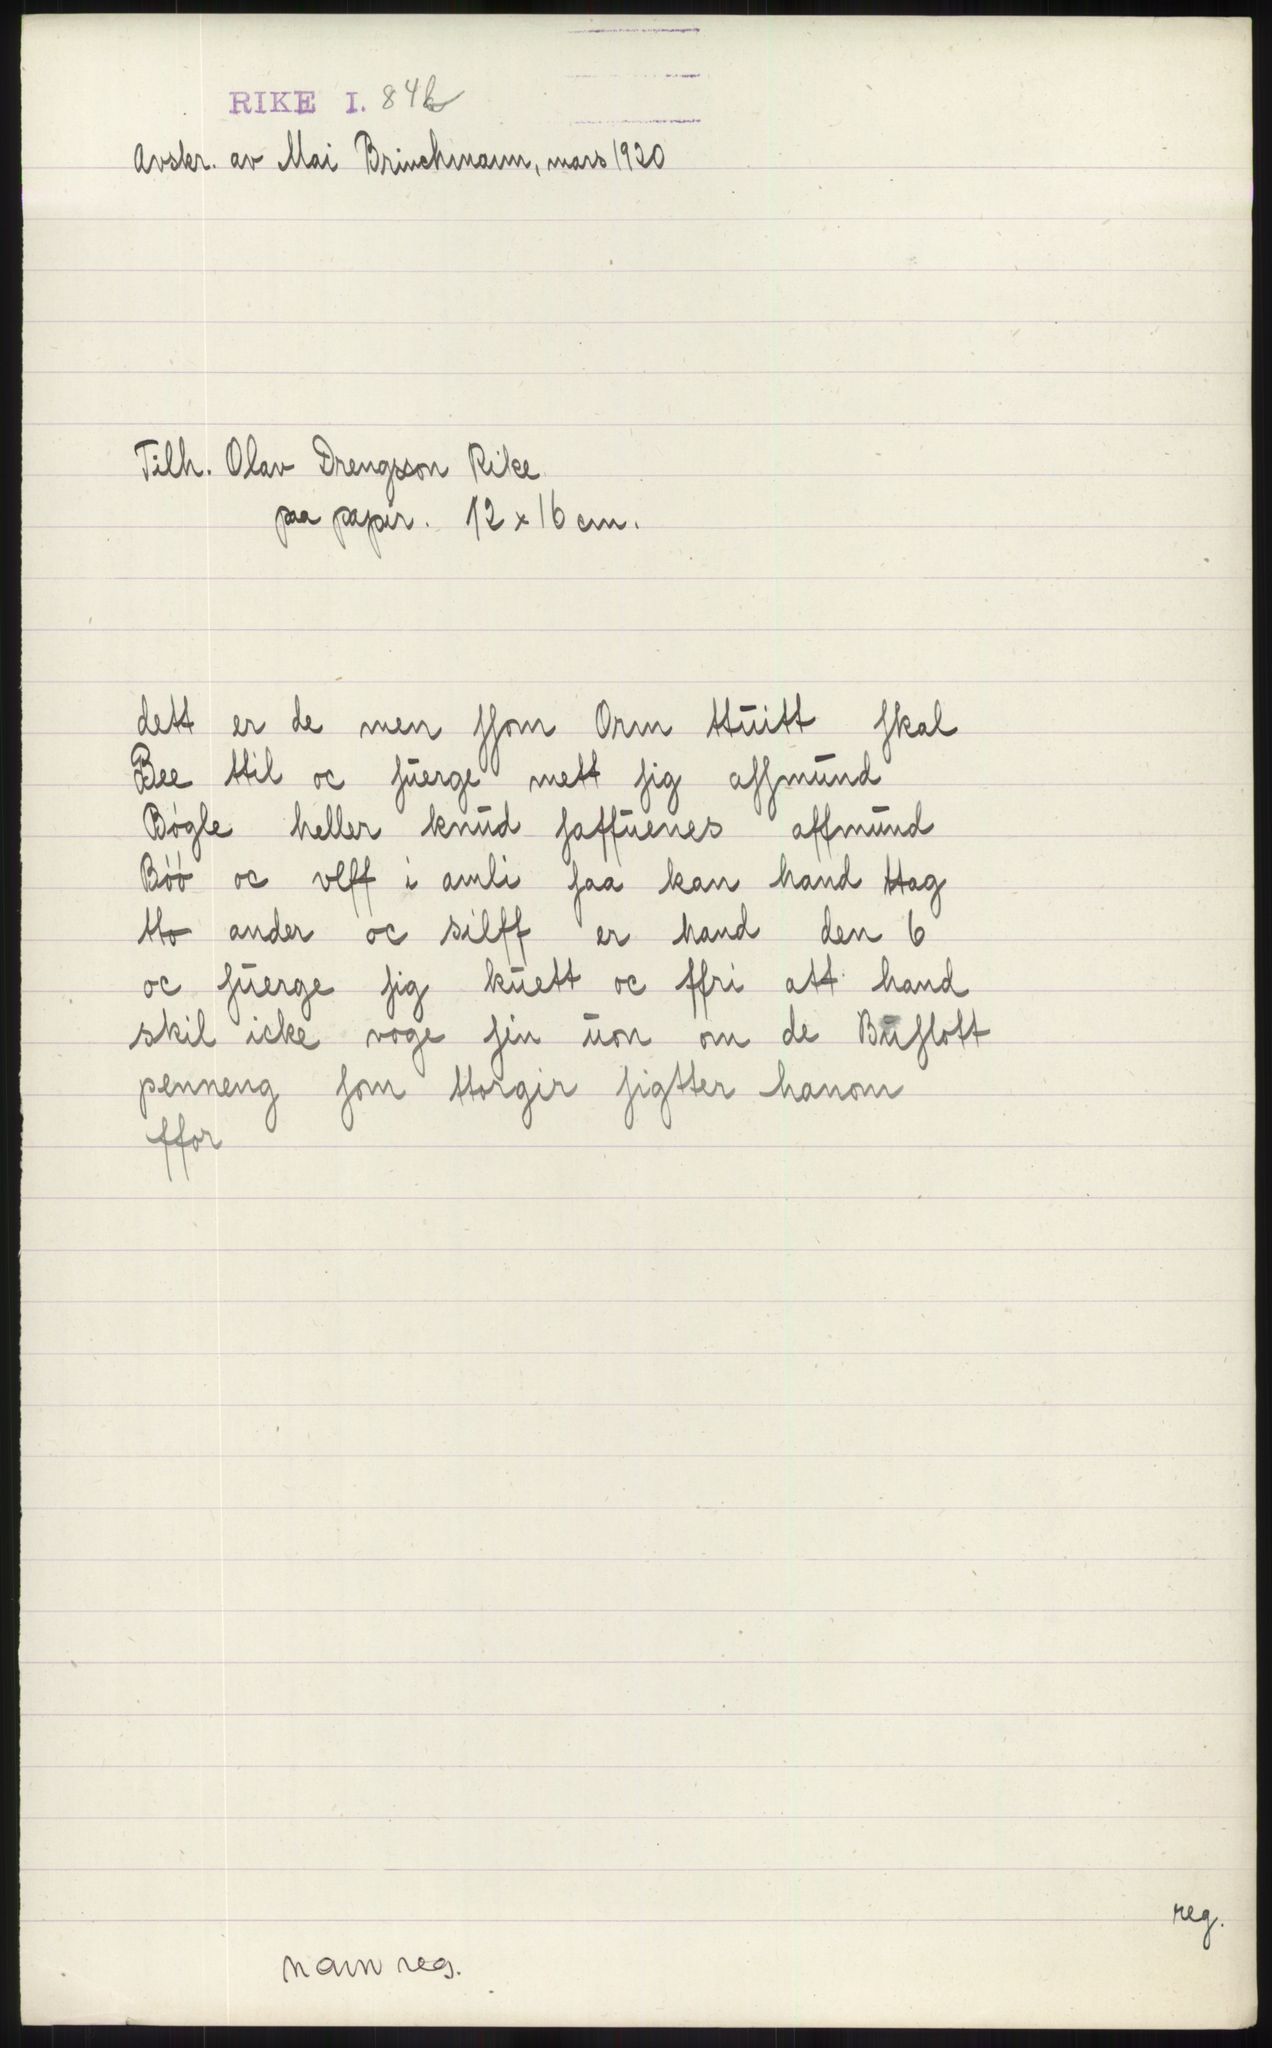 RIKE I. 84b
Avskr. av Mai Brinchmann, mars 1920
Tilh. Olav Drengsson Rike
paa papir. 12 x 16 cm.
dett er de men ssom Orm ttuitt skal
Bee ttil oc suerge mett sig assmund
Bøgle heller knud saffuenes affmund
Bøø oc vlff i amli saa kan hand ttag
tto ander oc silff er hand den 6
oc suerge sig kuett oc ffri att hand
skil icke voge sin uon om de Buslott
penneng som ttorgir sigtter hanom
ffor
reg.
navnreg.